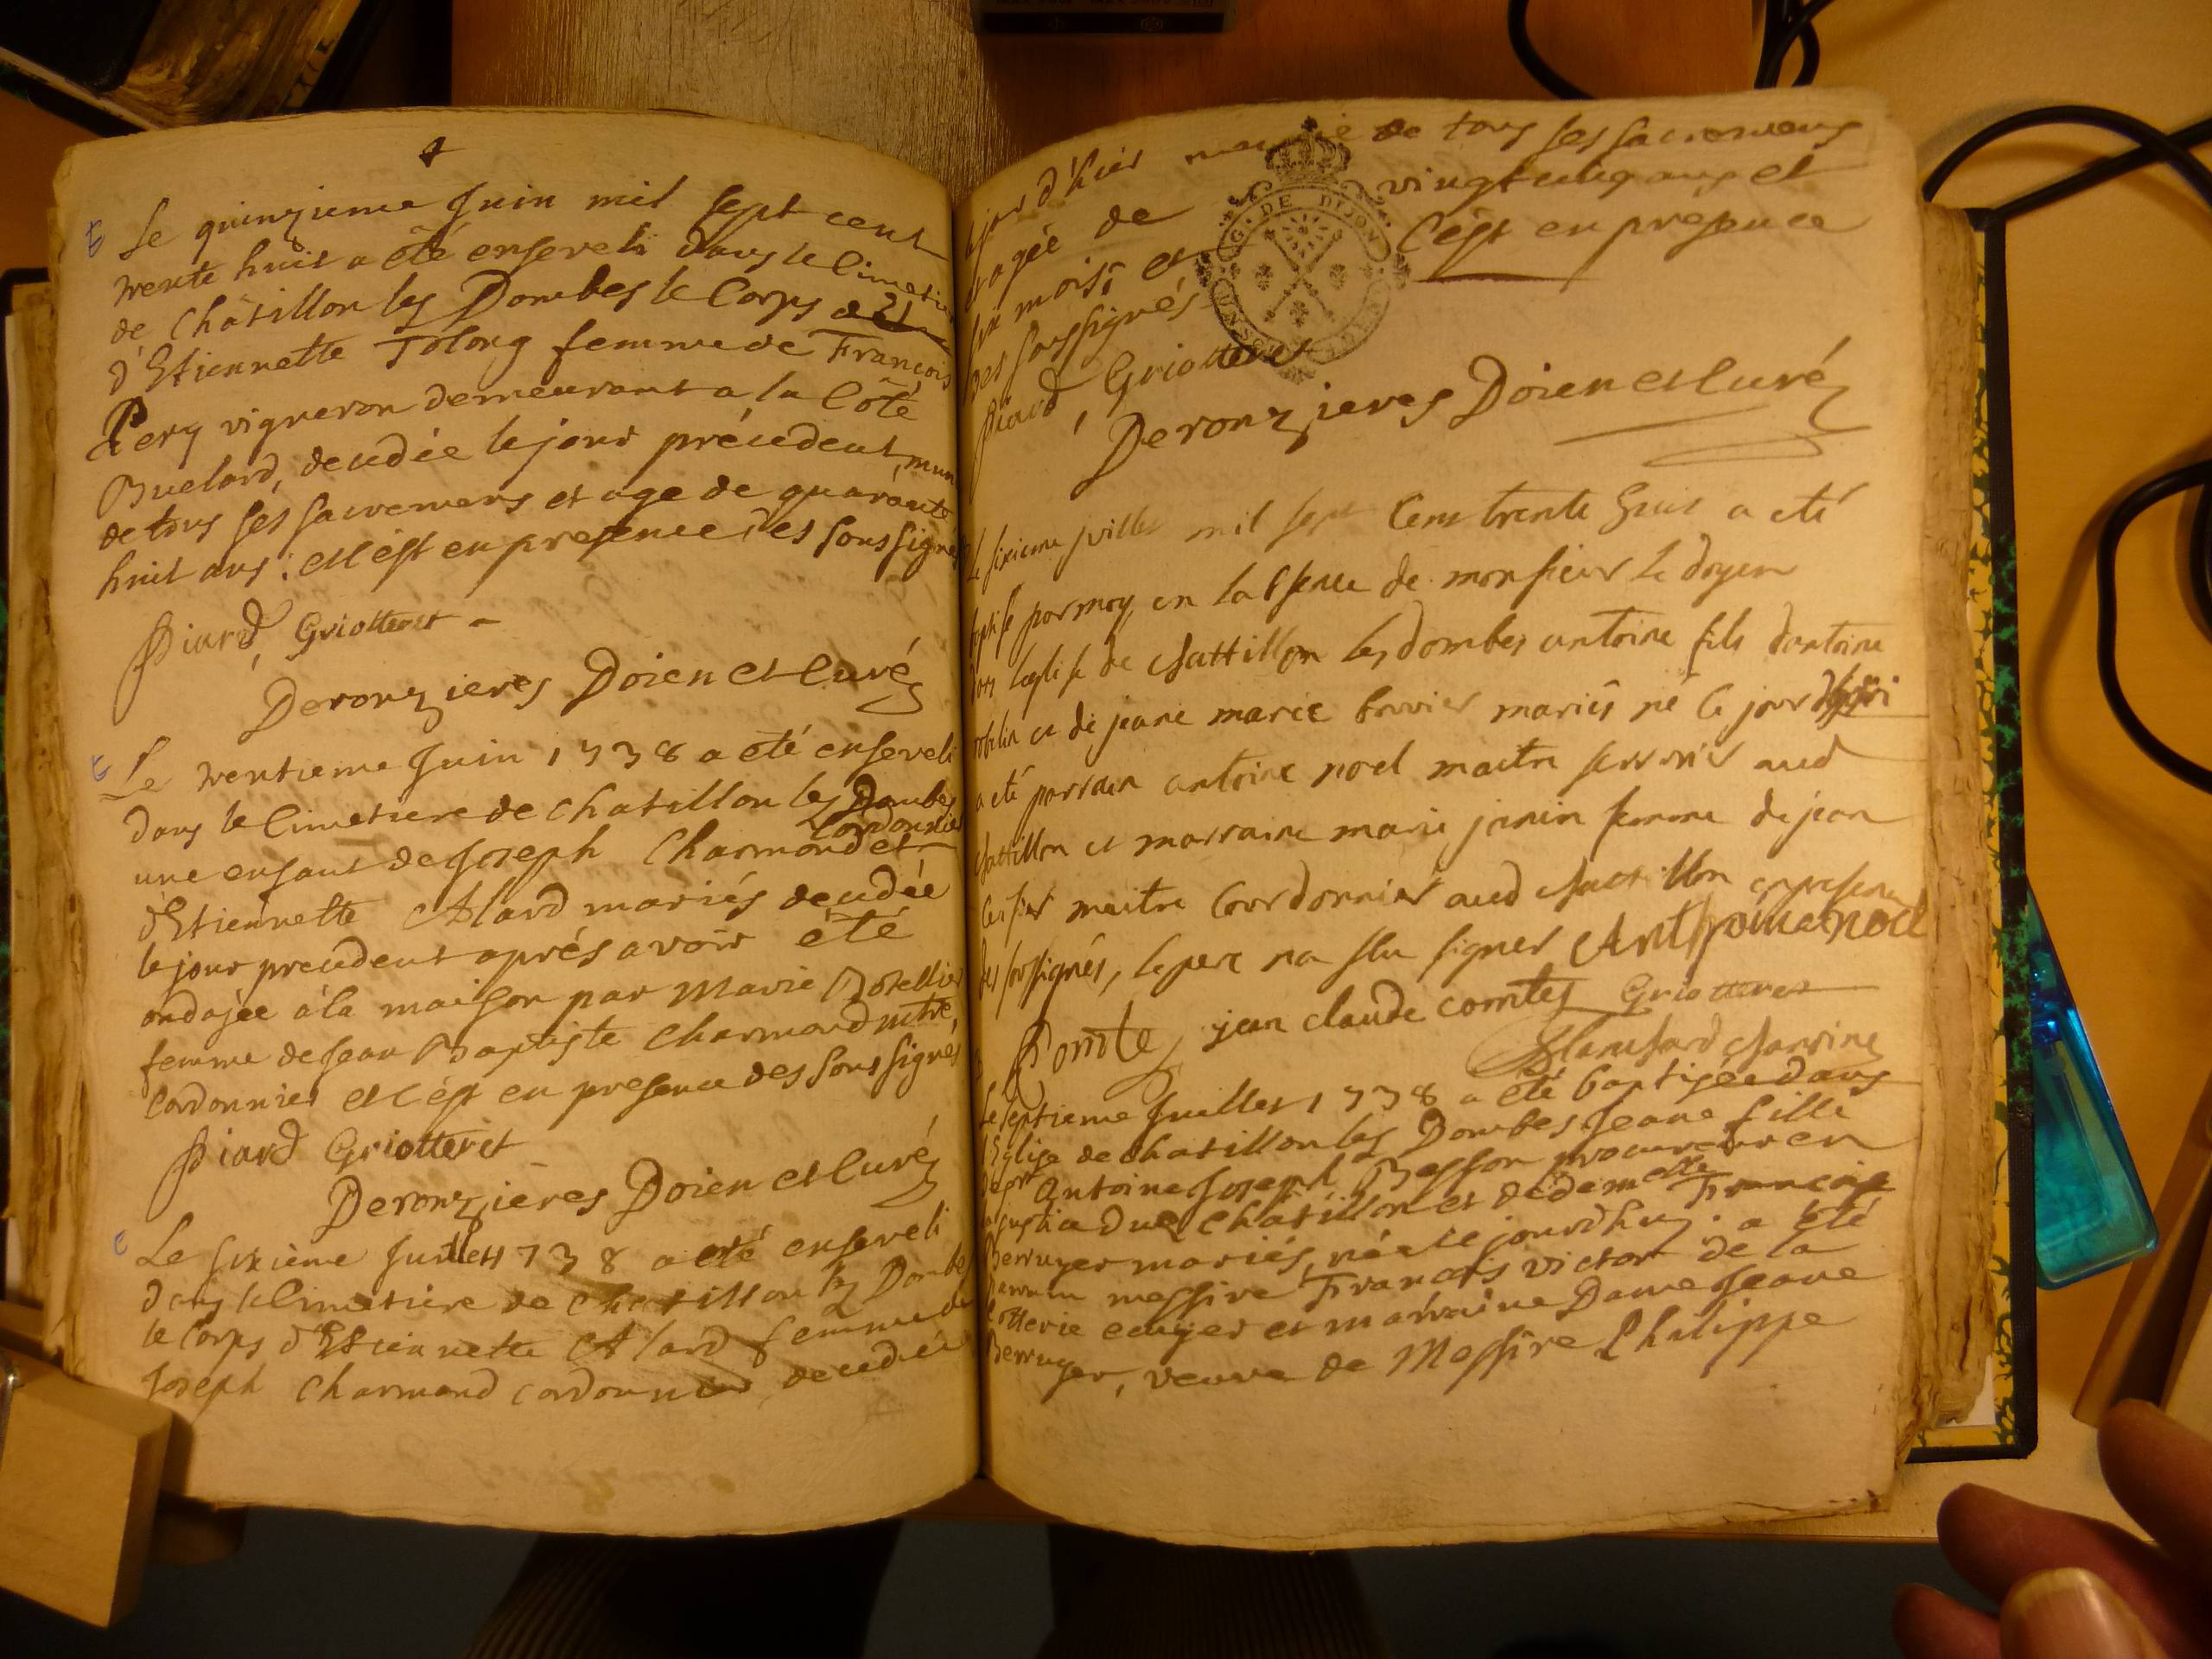 Le quinzieme Juin mil sept cent
trente huit a été enseveli dans le Cimetiere
de Châtillon les Dombes le Corps
d'Etiennette Tolong femme de François
Pery vigneron demeurant a la Côte
Buelard, decedée le jour précedent, mun
de tous ses sacremens et age de quarante
huit ans : et c'est en presence des soussignés
Piard, Griotteret
Deronzieres Doien et Curé
Le trentieme Juin 1738 a été enseveli
dans le Cimetiere de Chatillon les Dombes
Cordonnier
une enfant de Joseph Charmond et
d'Etiennette Alard mariés decedée
le jour precedent aprés avoir été
ondojée à la maison par Marie Botellier
femme de Jean Baptiste Charmond mtre
Cordonnier et c'est en presence des soussignés
Piard Griotteret
Deronzieres Doien et Curé
Le sixième Juillet 1738 a eté enseveli
dans le Cimetiere de Chatillon les Dombes
le Corps d'Etiennette Alard femme de
Joseph Charmond cordonnier, decedée
le jour d'hier de tous ses sacremens
et agée de vingt cinq ans et
six mois, et C'est en présence
des soussignés
Piard, Griotteret
G. DE DIJON
Deronzieres Doien et Curé
Le sixieme juillet mil sept Cent trente huit a eté
baptisé par moy en labsence de monsieur le doyen
dans leglise de chattillon les dombes antoine fils dantoine
et de jeane marie bouvier mariés né le jour
a eté parrain antoine noel maitre serrurier aud
chattillon et marraine marie janin femme de jean
maitre Cordonnier aud chattillon en presence
des soussignés, le pere na sçu signer Anthoine noel
Comte, jean claude comte, Griotteret
Blanchard
Le septieme Juillet 1738 a été baptisée dans
l'Eglise de Chatillon les Dombes Jeane fille
de Mr Antoine Joseph Besson procureur en
la justice dud Chatillon et de demelle Françoise
Berruyer mariés, née le jourdhuy. a été
parrain messire François victor de la
Cotterie ecuyer et marraine Dame Jeane
Berruyer, veuve de Messire Philippe